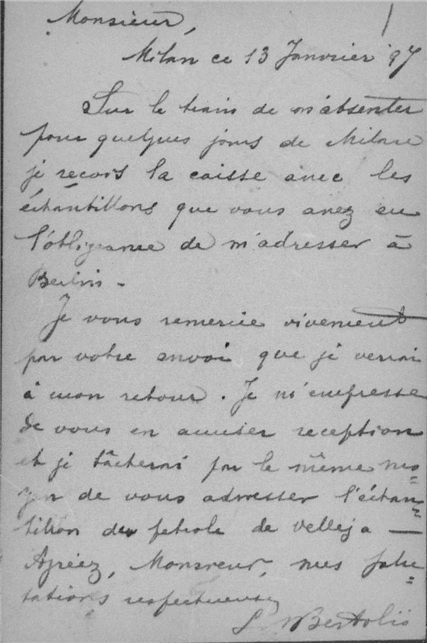 Monsieur,
Milan ce 13 Janvier 97
Sur le train de m'absenter
pour quelques jours de Milan
je reçois la caisse avec les
échantillons que vous avez eu
l'obligeance de m'adresser à
Je vous remercie vivement
par votre envoi que je verrai
à mon retour. Je m'empresse
de vous en accuser reception
et je tâcherai par le même mo=
yen de vous adresser l'échan=
tillon du petrole de Velleja —
Agréez, Monsieur, mes salu=
tations respectueuses